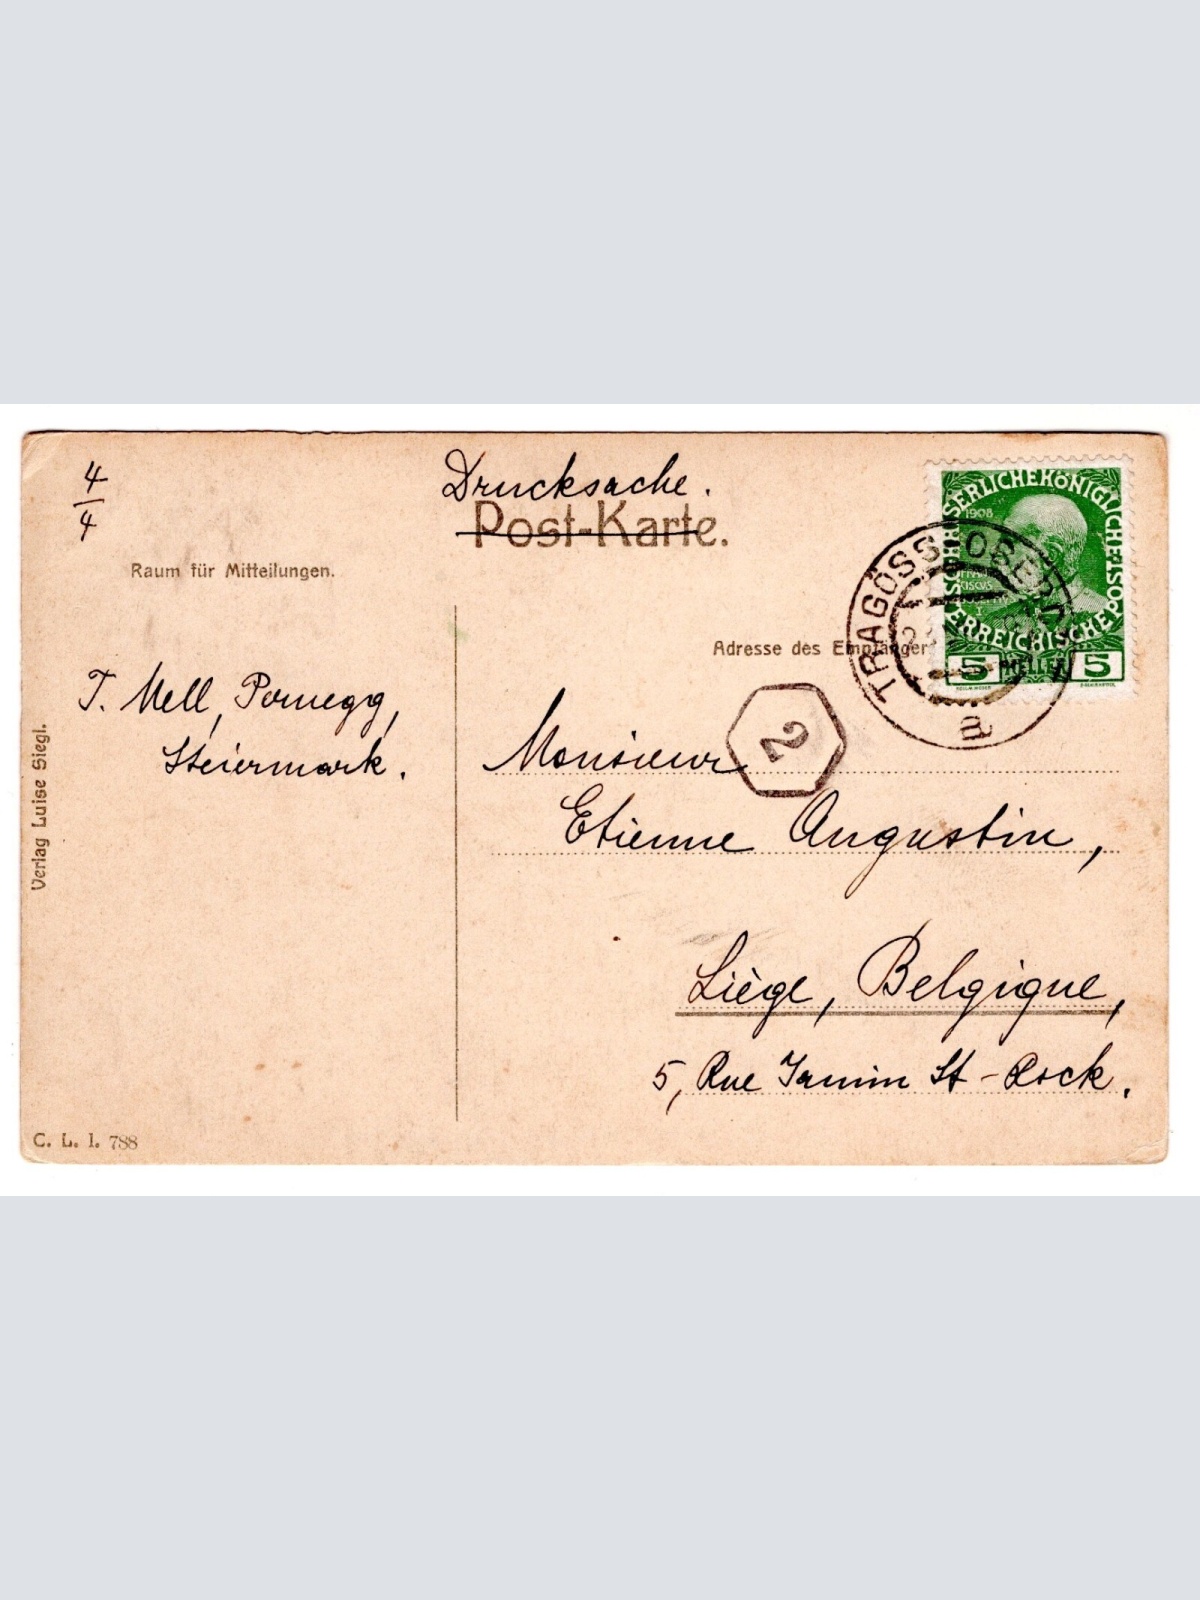 4
4
Drucksache.
Post-Karte.
Raum für Mitteilungen.
Adresse des Empfänger
KAISERLICHE KÖNIGLICHE
ÖSTERREICHISCHE POST
1908
5 HELLER 5
TRAGÖSS-OBERORT
a
2
T. Mell, Pernegg,
Steiermark.
Monsieur
Etienne Augustin,
Liège, Belgique,
5, Rue Jamin St-Rock.
Verlag Luise Siegl.
C. L. I. 788